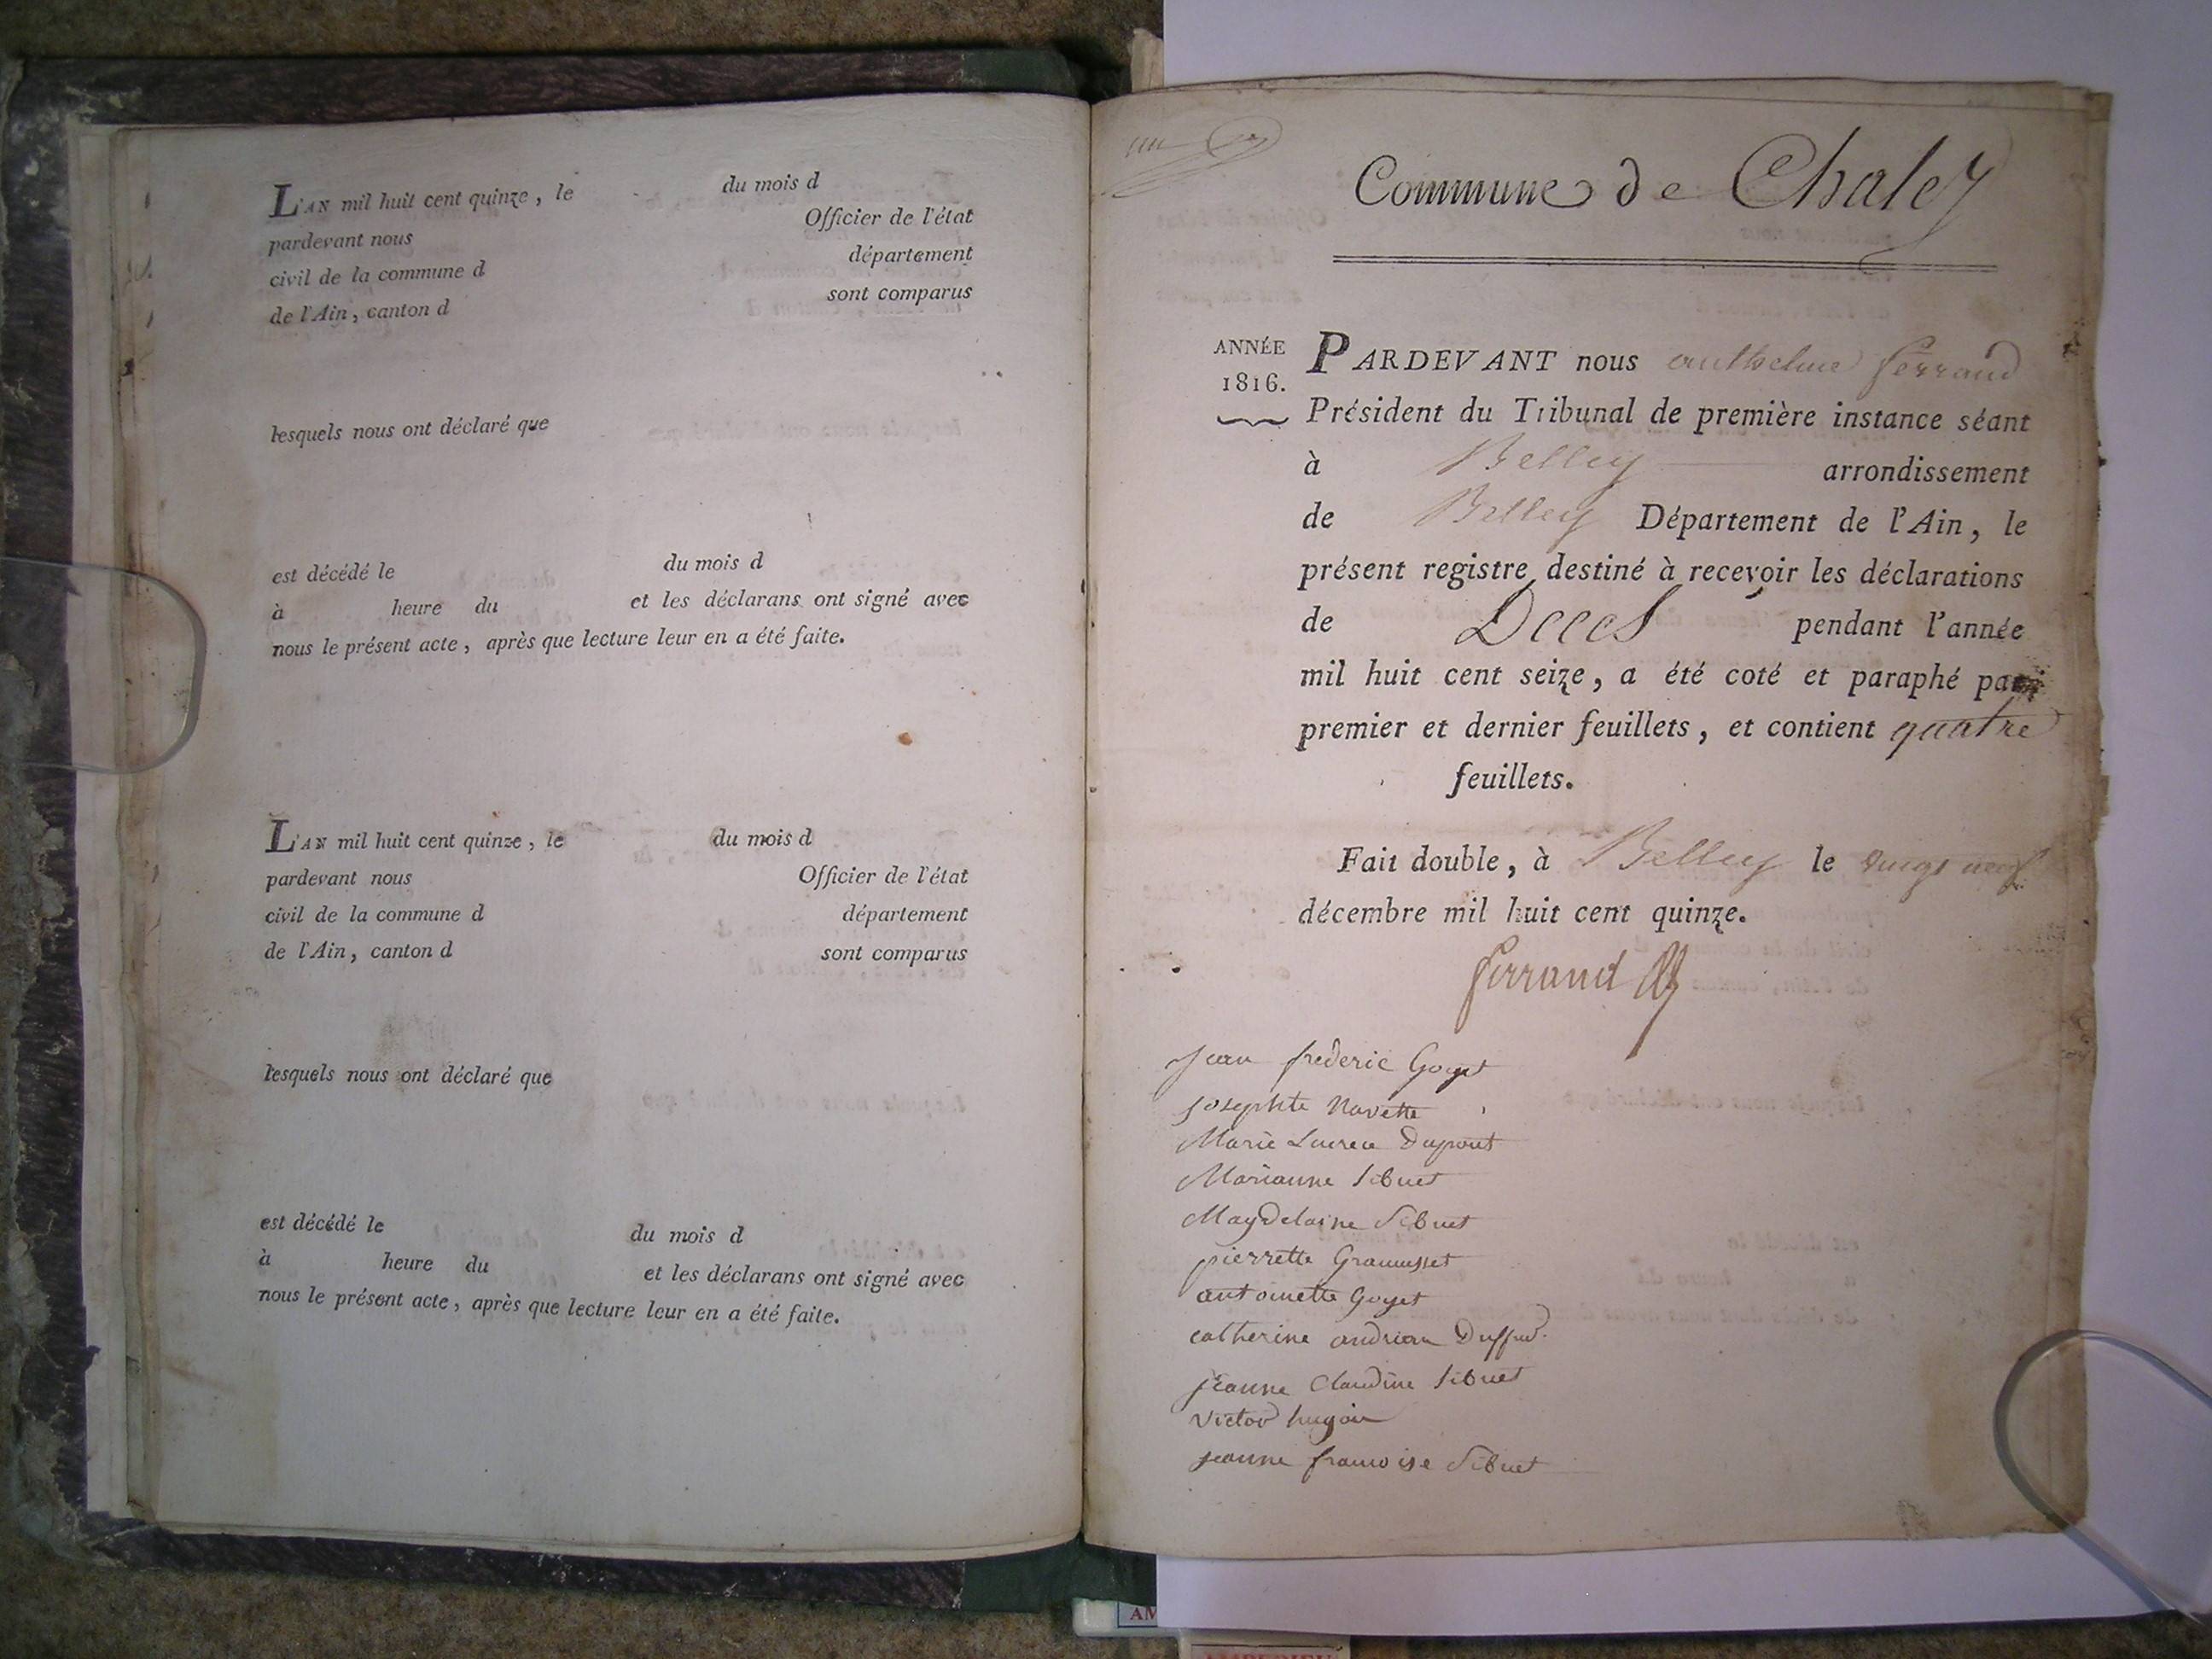 L'AN mil huit cent quinze, le du mois d
pardevant nous Officier de l'état
civil de la commune d département
de l'Ain, canton d sont comparus
lesquels nous ont déclaré que
est décédé le du mois d
à heure du et les déclarans ont signé avec
nous le présent acte, après que lecture leur en a été faite.
L'AN mil huit cent quinze, le du mois d
pardevant nous Officier de l'état
civil de la commune d département
de l'Ain, canton d sont comparus
lesquels nous ont déclaré que
est décédé le du mois d
à heure du et les déclarans ont signé avec
nous le présent acte, après que lecture leur en a été faite.
Commune de Chaley
ANNÉE
1816.
PARDEVANT nous anthelme ferrand
Président du Tribunal de première instance séant
à Belley arrondissement
de Belley Département de l'Ain, le
présent registre destiné à recevoir les déclarations
de Deces pendant l'année
mil huit cent seize, a été coté et paraphé par
premier et dernier feuillets, et contient quatre
feuillets.
Fait double, à Belley le vingt neuf
décembre mil huit cent quinze.
ferrand
Jean frederic Goyet
josephte Navette
Marie Dupont
Marianne Sibuet
Magdelaine Sibuet
pierrette Gramusset
antoinette Goyet
catherine andrian
jeanne Claudine Sibuet
Victor hugon
jeanne francoise Sibuet
AM